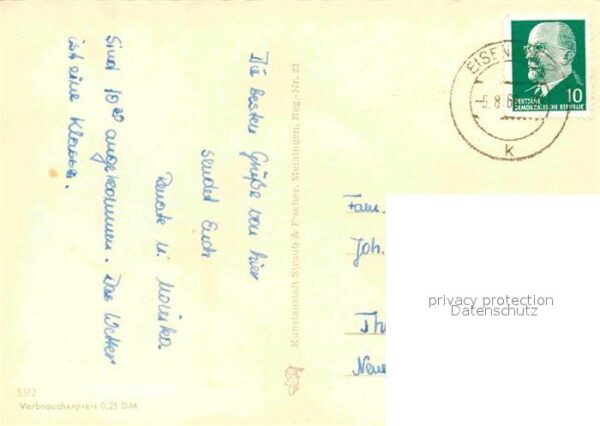 Die besten Grüße von hier
sendet Euch
Renate u. Monika
Sind 10³⁰ angekommen. Das Wetter
ist eine Klasse.
Kunstanstalt Straub & Fischer, Meiningen, Reg.-Nr. 23
EISEN
-5.8.6
k
10
DEUTSCHE
DEMOKRATISCHE REPUBLIK
Fam.
Joh.
Th
Neue
privacy protection
Datenschutz
Verbraucherpreis 0,25 DM